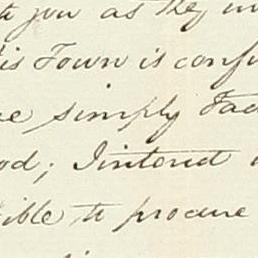 you as they
is Town is conf
simply Fac
od; I intend
ible to procure